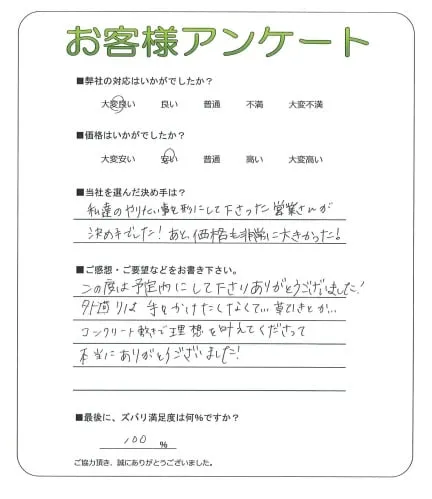 お客様アンケート
■弊社の対応はいかがでしたか?
大変良い 良い 普通 不満 大変不満
■価格はいかがでしたか?
大変安い 安い 普通 高い 大変高い
■当社を選んだ決め手は?
私達のやりたい事を形にして下さった営業さんが
決め手でした!あと、価格も非常に大きかった!
■ご感想・ご要望などをお書き下さい。
この度は予定内にして下さりありがとうございました!
外廻りは手をかけたくなくて…草ひきとか…
コンクリート敷きで理想を叶えてくださって
本当にありがとうございました!
■最後に、ズバリ満足度は何%ですか?
100 %
ご協力頂き、誠にありがとうございました。